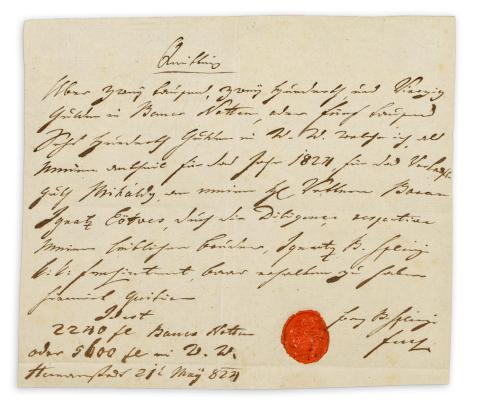 Quittung
Über zwey tausend, zwey Hunderth und Vierzig
Gulden in Banco Notten, oder fünf tausend
Sechs Hunderth Gulden in W. W. welche ich als
meinen antheil für das Jahr 1824 für das
gutt Mihaldy, von meinem H. Vettern Baron
Ignatz Eötves, durch die Diligence, respective
meinen Bruder, Ignatz B.
baar erhalten zu haben
hiemit quittire
Idest
2240 fl Banco Notten
oder 5600 fl in W. W.
Hermanstadt 21t May 824